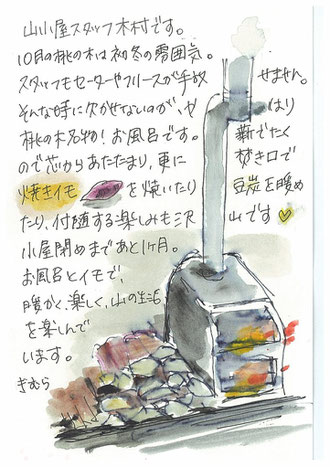 山小屋スタッフ木村です。
10月の桃の木は初冬の雰囲気。
スタッフもセーターやフリースが手放せません。
そんな時に欠かせないのが、やはり
桃の木名物!お風呂です。薪でたく
ので芯からあたたまり、更に焚き口で
焼きイモを焼いたり豆炭を暖め
たり、付随する楽しみも沢山です
小屋閉めまであと1ヶ月。
お風呂とイモで、
暖かく、楽しく、山の生活
を楽しんで
います。
きむら